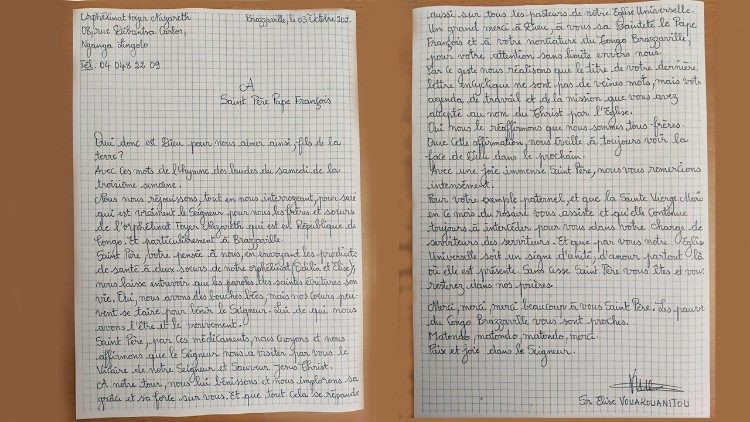 Orphélinat Foyer Nazareth
Brazzaville, le 03 Octobre 202
08, rue Débantsa Carlos,
Nganga Lingolo
Tél: 04 048 22 09
A
Saint Père Pape François
Qui donc est Dieu pour nous aimer ainsi, fils de la
terre?
Avec ces mots de l'hymne des laudes du samedi de la
troisième semaine.
Nous nous réjouissons, tout en nous interrogeant, pour savoir
qui est vraiment le Seigneur pour nous les frères et soeurs
de l'orphélinat Foyer Nazareth qui est en République du
Congo. Et particulièrement à Brazzaville.
Saint Père votre pensée à nous, en envoyant les produits
de santé à deux soeurs de notre orphélinat (Cécilia et Elise),
nous laisse entrevoir que les paroles des saintes écritures son
vie. Oui, nous avons des bouches bées, mais nos coeurs peu-
vent se taire pour bénir le Seigneur. Lui de qui nous
avons l'être et le mouvement.
Saint Père, par ces médicaments, nous croyons et nous
affirmons que le Seigneur nous a visiter par vous le
Vicaire de notre Seigneur et Sauveur Jésus Christ.
A notre tour, nous lui bénissons et nous implorons sa
grâce et sa force sur vous. Et que tout cela se répande
aussi sur tous les pasteurs de notre Eglise Universelle.
Un grand merci à Dieu, à vous sa Sainteté le Pape
François et à votre nonciature du Congo Brazzaville,
pour votre attention sans limite envers nous.
Par le geste nous réalisons que le titre de votre dernière
lettre Encyclique ne sont pas de veines mots, mais votr
agenda de travail et de la mission que vous avez
accepté au nom du Christ par l'Eglise.
Oui nous le réaffirmons que nous sommes tous frères.
Que cette affirmation, nous éveille à toujours voir la
face de Dieu dans le prochain.
Avec une joie immense Saint Père, nous vous remercions
intensément.
Pour votre exemple paternel, et que la Sainte Vierge Mari
en ce mois du rosaire vous assiste et qu'elle continue
toujours à intercéder pour vous dans votre charge de
serviteurs des serviteurs. Et que par vous notre Eglise
Universelle soit un signe d'unité, d'amour partout là
où elle est présente. Sans cesse Saint Père vous êtes et vou
resterez dans nos prières.
Merci, merci, merci beaucoup à vous Saint Père. Les pauvres
du Congo Brazzaville vous sont proches.
Matondo, matondo, matondo, merci.
Paix et joie dans le Seigneur.
Sr Elise VOUAKOUANITOU